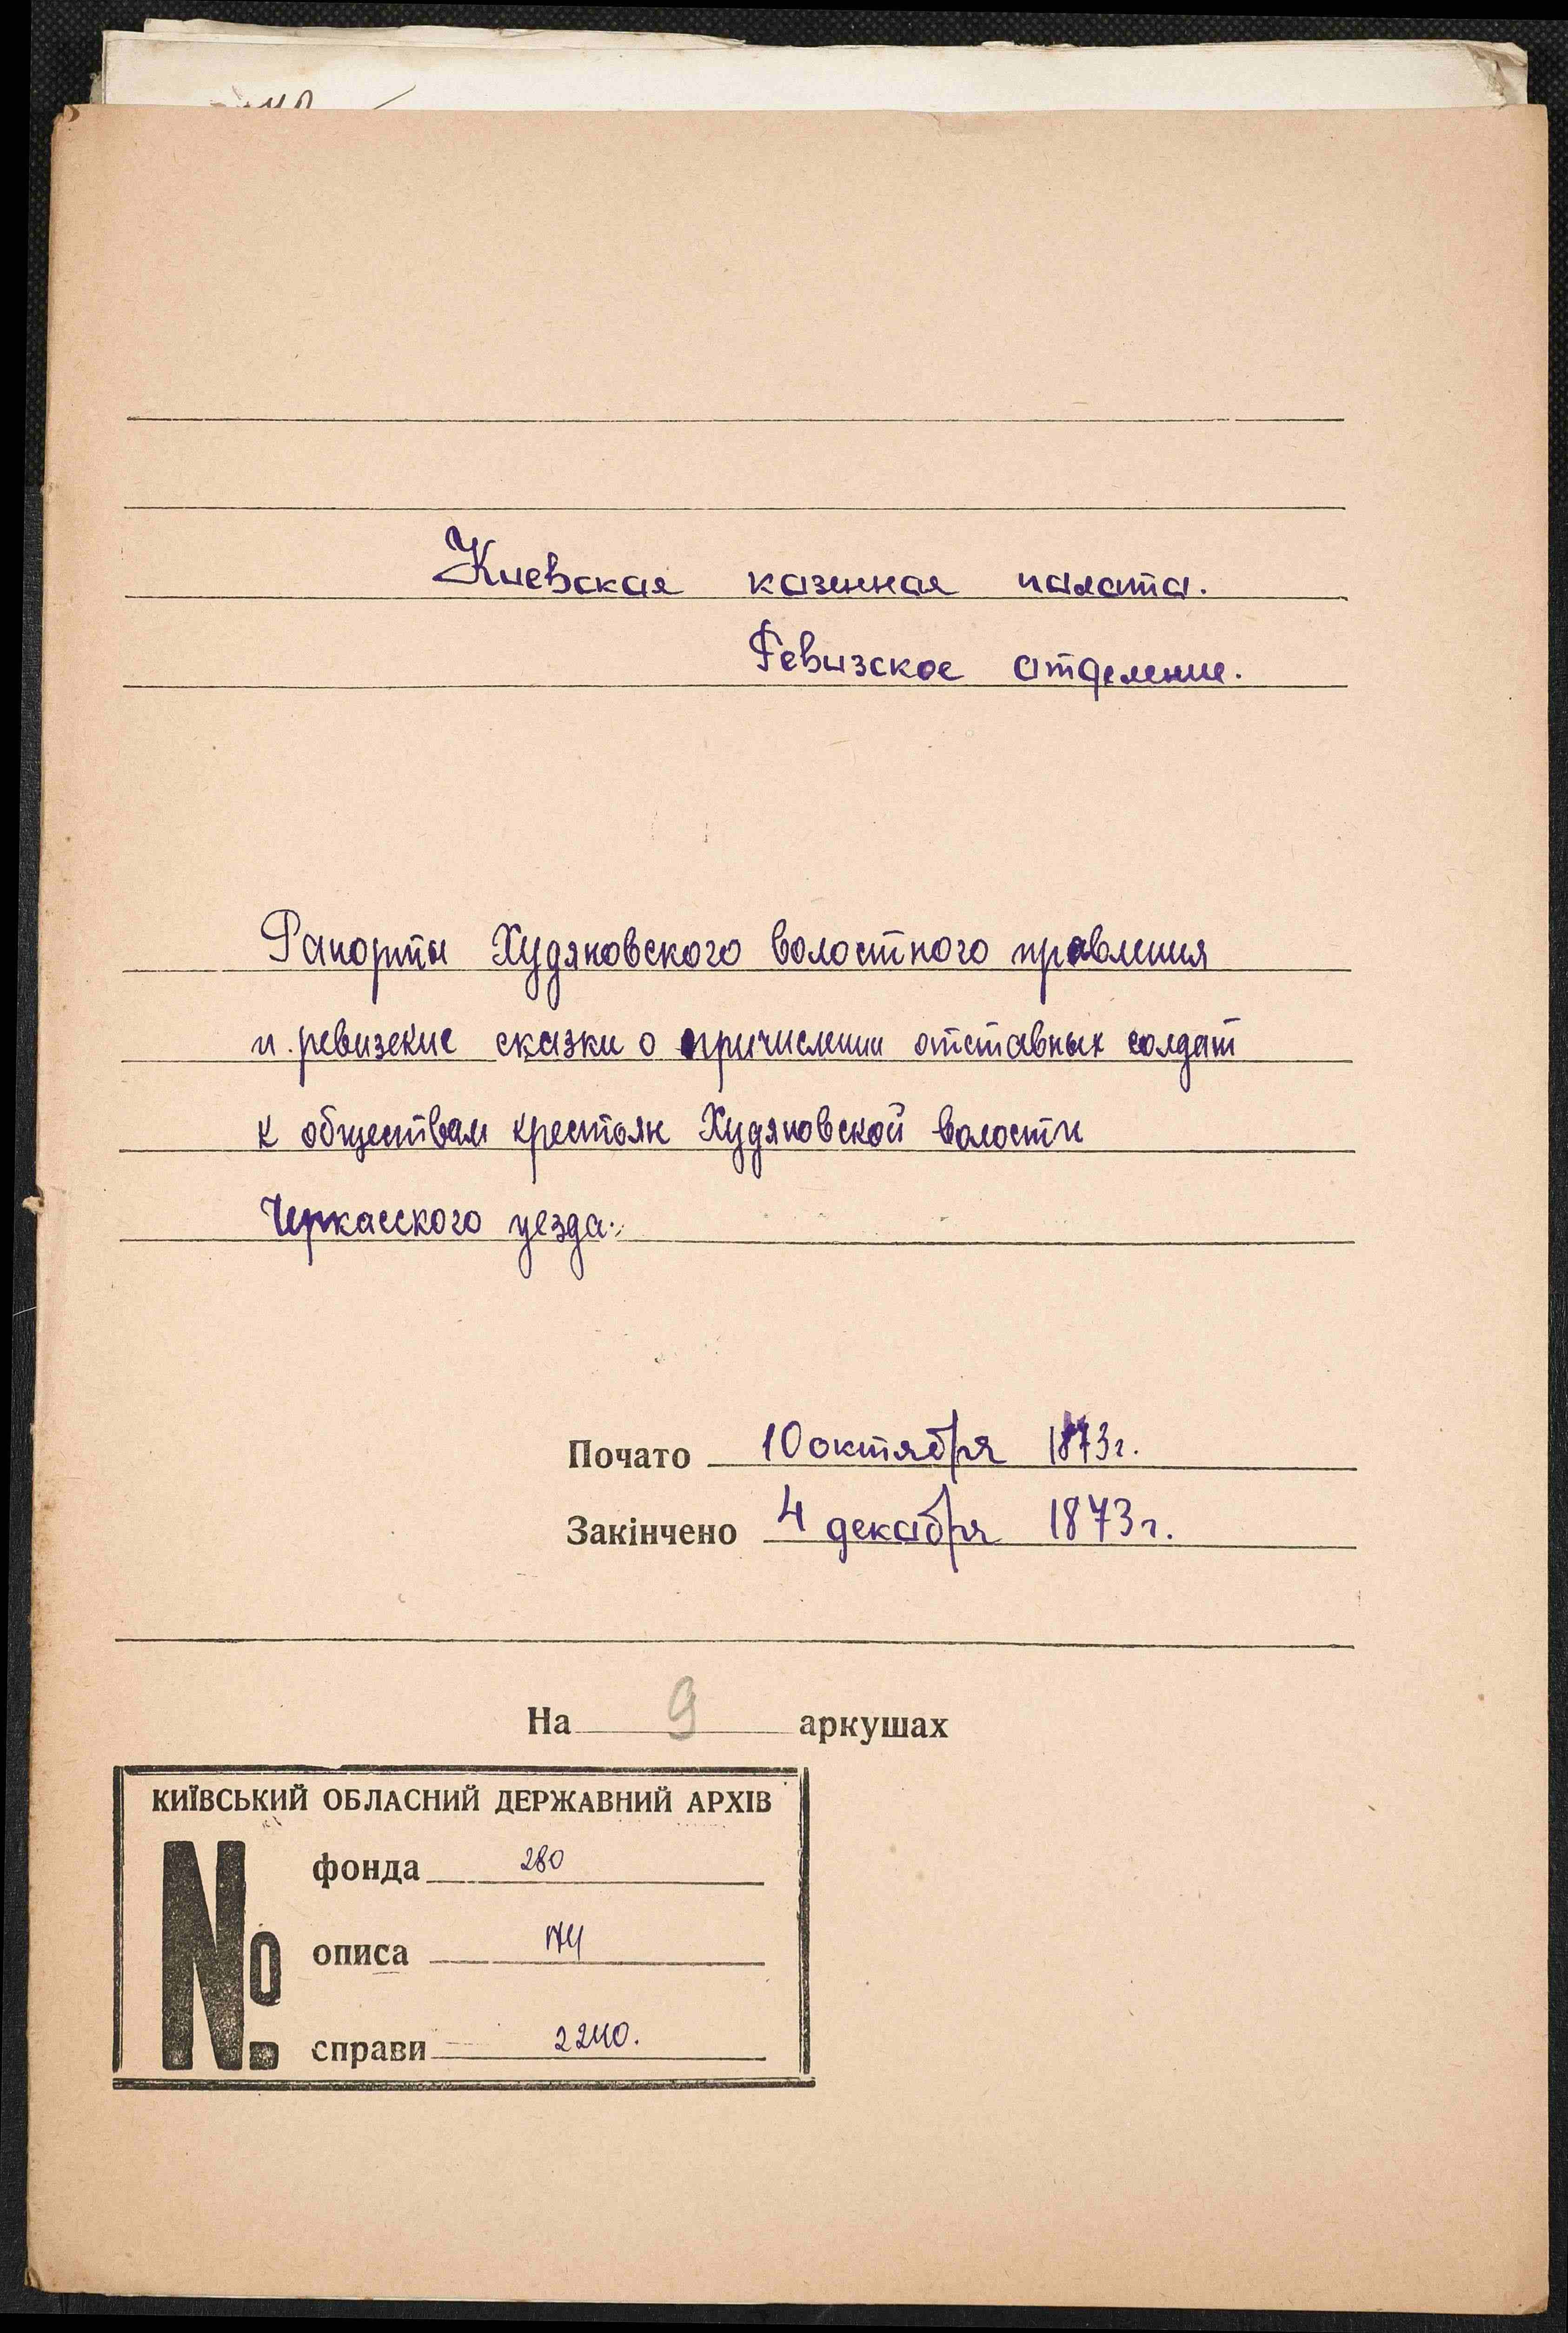 Киевская казенная палата.
Ревизское отделение.
Рапорты Худяковского волостного правления
и ревизские сказки о причислении отставных солдат
к обществам крестьян Худяковской волости
Черкасского уезда.
Почато 10 октября 1873г.
Закінчено 4 декабря 1873г.
На 9 аркушах
КИЇВСЬКИЙ ОБЛАСНИЙ ДЕРЖАВНИЙ АРХІВ
№ фонда 280
описа 174
справи 2240.